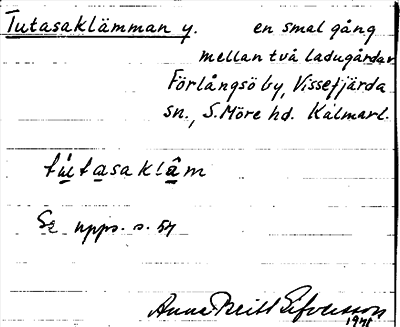 Tutasaklämman y. en smal gång
mellan två ladugårdar
Förlångsö by, Vissefjärda
sn., S. Möre hd. Kalmarl.
tútasaklâm
Se upps. s. 54
Anna Britt Sifversson
1941